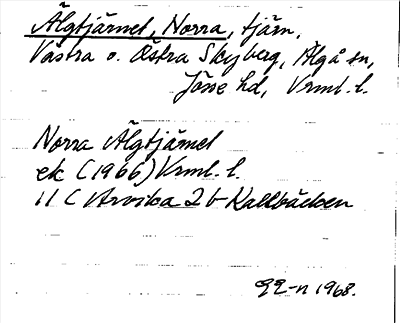 Älgtjärnet, Norra, tjärn,
Västra o. Östra Skyberg, Älgå sn,
Jösse hd, Vrml. l.
Norra Älgtjärnet
ek (1966) Vrml. l.
11 C Arvika 2 b Kallbäcken
1968.